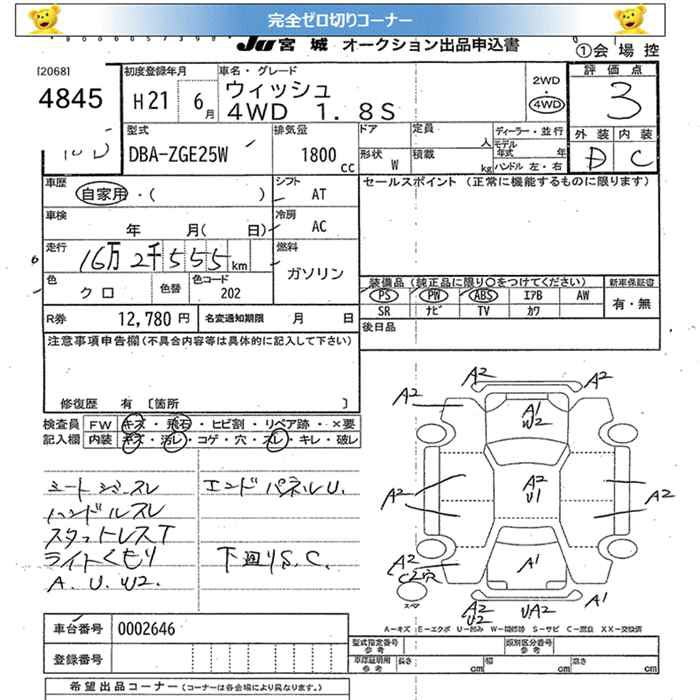 完全ゼロ切りコーナー
JU 宮城 オークション出品申込書
①会場控
[2068]
4845
初度登録年月
H21 6月
車名・グレード
ウィッシュ
4WD 1.8S
2WD
・
4WD
評価点
3
外装 内装
D C
型式
DBA-ZGE25W
排気量
1800 cc
ドア
定員 人
形状 W
積載 kg
ディーラー・並行
モデル年式 年
ハンドル 左・右
車歴
自家用・( )
シフト
AT
セールスポイント (正常に機能するものに限ります)
車検
年 月( 日)
冷房
AC
走行
16万2千555km
燃料
ガソリン
色
クロ
色替
色コード
202
装備品 (純正品に限り○をつけてください)
PS PW ABS エアB AW
SR ナビ TV カワ
新車保証書
有・無
R券 12,780円
名変通知期限 月 日
後日品
注意事項申告欄(不具合内容等は具体的に記入して下さい)
修復歴 有 〔箇所 〕
検査員記入欄
FW キズ・飛石・ヒビ割・リペア跡・×要
内装 キズ・汚レ・コゲ・穴・スレ・キレ・破レ
シートシミスレ
ハンドルスレ
スタットレスT
ライトくもり
A.U.W2.
エンドパネルU.
下回りS.C.
A2
A2
A2
A1
U2
A2
A2
U1
A2
A2
C2穴
A1
スペア
A2
U2
UA2
A1
A-キズ E-エクボ U-凹み W-補修跡 S-サビ C-腐食 XX-交換済
車台番号 0002646
登録番号
型式指定番号
参考
類別区分番号
参考
車庫証明用
参考
長さ cm
幅 cm
高さ cm
希望出品コーナー (コーナーは各会場により異なります。)